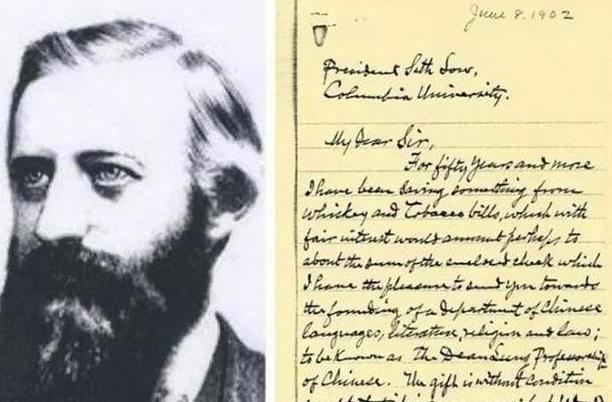 June 8. 1902
President Seth Low,
Columbia University.
My Dear Sir,
For fifty years and more
I have been saving something from
whiskey and Tobacco bills, which with
fair interest would amount perhaps to
about the sum of the enclosed check which
I have the pleasure to send you towards
the founding of a department of Chinese
languages, literature, religion and law;
to be known as the Dean Lung Professorship
of Chinese. The gift is without condition